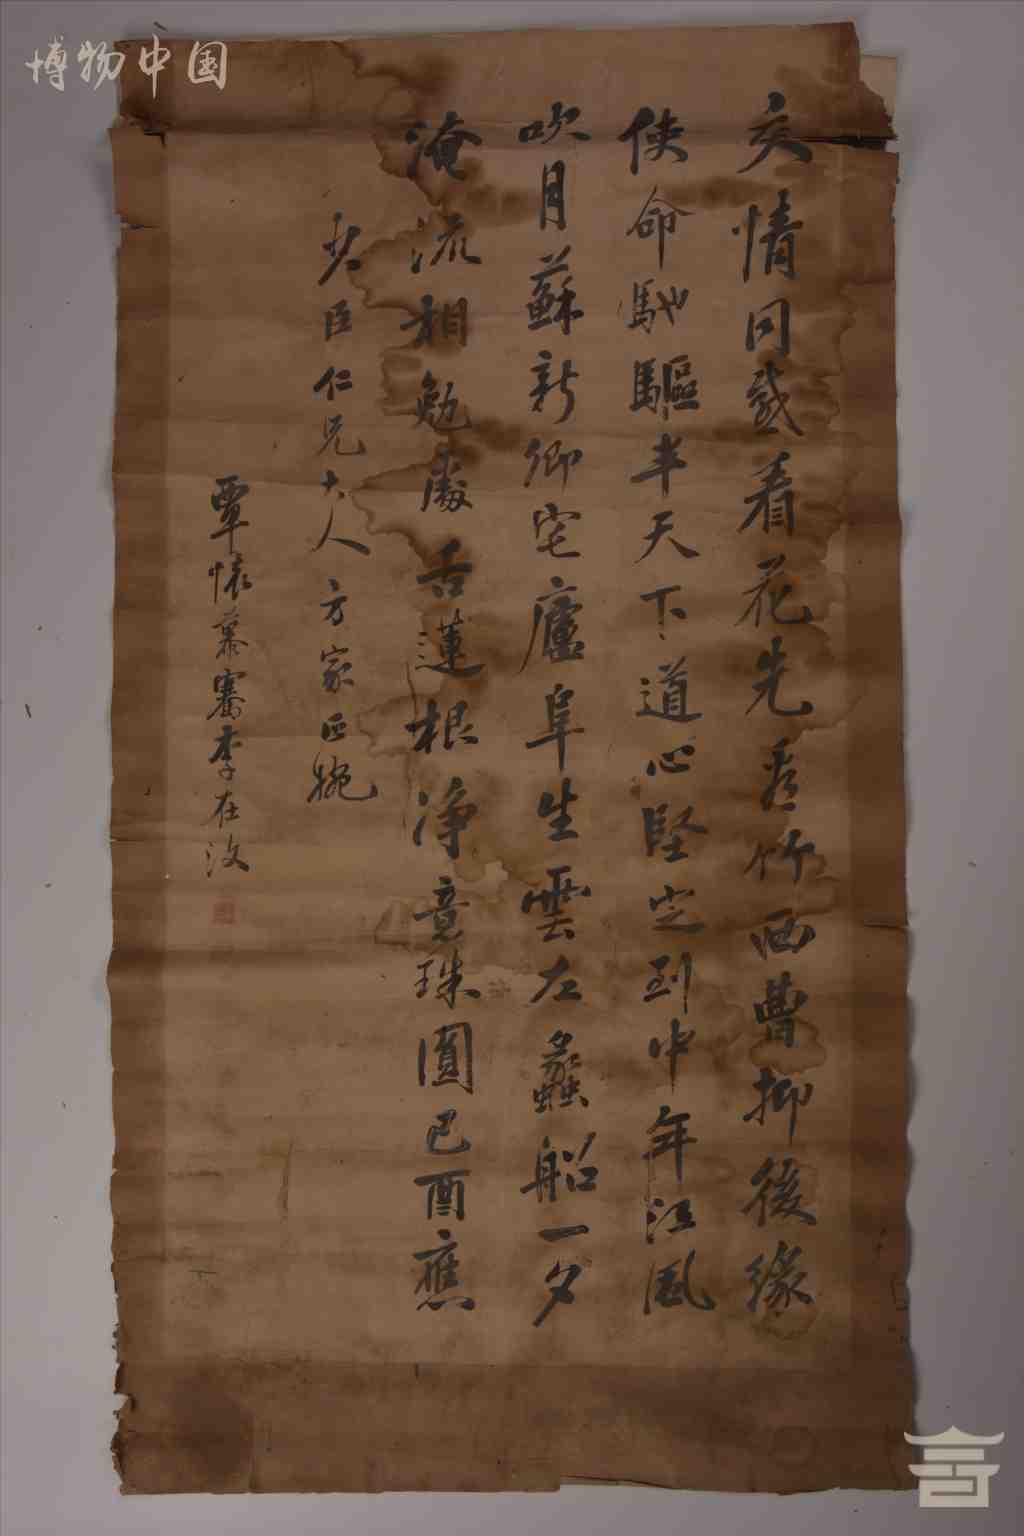 博物中国
交情同感看花先秀竹西曹抑後緣
使命馳驅半天下道心堅定到中年江風
吹月蘇新卿宅廬阜生雲左蠡船一夕
淹流相勉勵舌蓮根净意珠圓己酉應
臣仁兄大人方家正腕
覃懷慕騫李在汶